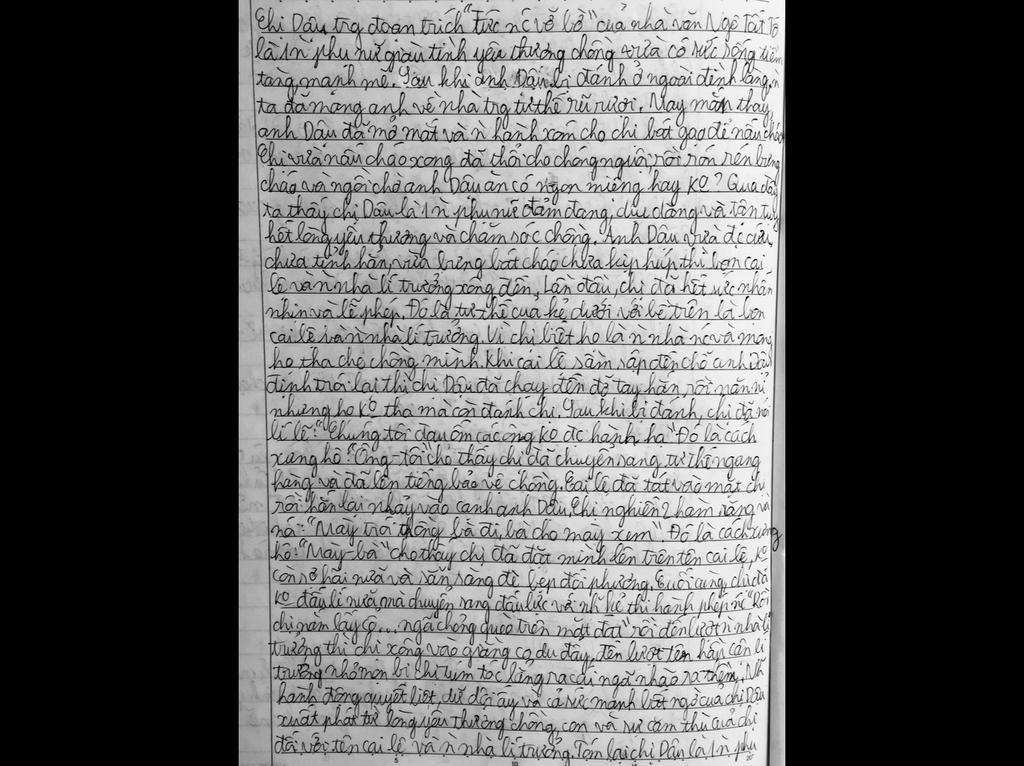 Chị Dậu trg đoạn trích "Tức nc vỡ bờ" của nhà văn Ngô Tất Tố
là 1 n` phụ nữ giàu tình yêu thương chồng vừa có sức sống tiềm
tàng, mạnh mẽ. Sau khi anh Dậu bị đánh ở ngoài đình làng, n`
ta đã mang anh về nhà trg tư thế rũ rượi. May mắn thay,
anh Dậu đã mở mắt và n` hành xóm cho chị bát gạo để nấu cháo
Chị vừa nấu cháo xong đã thổi cho chóng nguội, rồi rón rén bưng
cháo và ngồi chờ anh Dậu ăn có ngon miệng hay ko? Qua đây
ta thấy chị Dậu là 1 n` phụ nữ đảm đang, dịu dàng và tận tụy
hết lòng yêu thương và chăm sóc chồng. Anh Dậu vừa đc cứu,
chưa tỉnh hẳn, vừa bưng bát cháo chưa kịp húp thì bọn cai
lệ và n` nhà lí trưởng xông đến. Lần đầu, chị đã hết sức nhẫn
nhịn và lễ phép. Đó là tư thế của kẻ dưới với bề trên là bọn
cai lệ và n` nhà lí trưởng. Vì chị biết họ là n` nhà nc và mong
họ tha cho chồng mình. Khi cai lệ sầm sập đến chỗ anh Dậu
định trói lại thì chị Dậu đã chạy đến đỡ tay hắn rồi năn nỉ
nhưng họ ko tha mà còn đánh chị. Sau khi bị đánh, chị đã nói
lí lẽ: "Chúng tôi đau ốm các ông ko đc hành hạ" Đó là cách
xưng hô: "Ông-tôi" cho thấy chị đã chuyển sang tư thế ngang
hàng và đã lên tiếng bảo vệ chồng. Cai lệ đã tát vào mặt chị
rồi hắn lại nhảy vào cạnh anh Dậu. Chị nghiến 2 hàm răng và
nói: "Mày trói chồng bà đi, bà cho mày xem" Đó là cách xưng
hô: "Mày-bà" cho thấy chị đã đặt mình lên trên tên cai lệ, ko
còn sợ hãi nữa và sẵn sàng đè bẹp đối phương. Cuối cùng, chị đã
ko đấu lí nữa, mà chuyển sang đấu lực với nh~ kẻ thi hành phép nc "Rồi
chị nắm lấy cổ... ngã chỏng quèo trên mặt đất" rồi đến lượt n` nhà lí
trưởng thì chị xông vào giằng co du đẩy, đến lượt tên hầu cận lí
trưởng nhỏ mọn bị chị túm tóc lẳng ra cái ngã nhào ra thềm. Nh~
hành động quyết liệt, dữ dội ấy và cả sức mạnh bất ngờ của chị Dậu
xuất phát từ lòng yêu thương chồng, con và sự căm thù của chị
đối với tên cai lệ và n` nhà lí trưởng. Tóm lại chị Dậu là 1 n` phụ